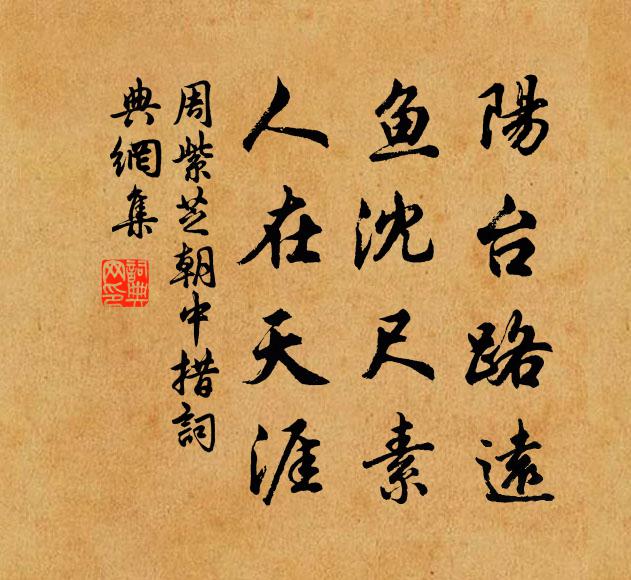 陽台路遠
鱼沈尺素
人在天涯
周紫芝朝中措詞
典網集
詞典网印